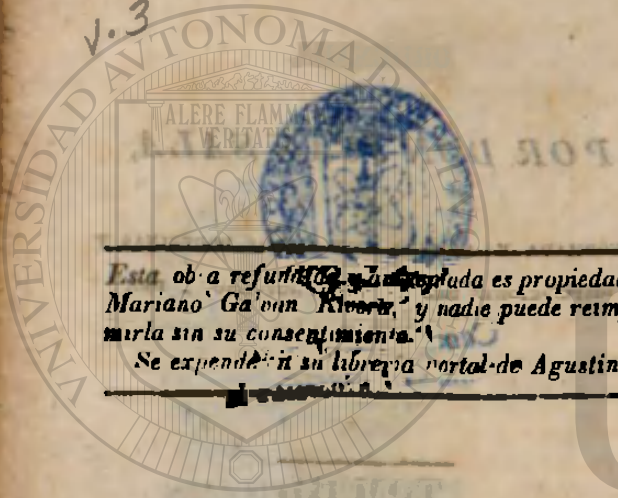 v. 3
ALERE FLAMMAM
VERITATIS
Esta obra refundida y adoptada es propiedad
Mariano Galvan Rivera, y nadie puede reim
mirla sin su consentimiento.
Se expende en su libreria portal de Agustin